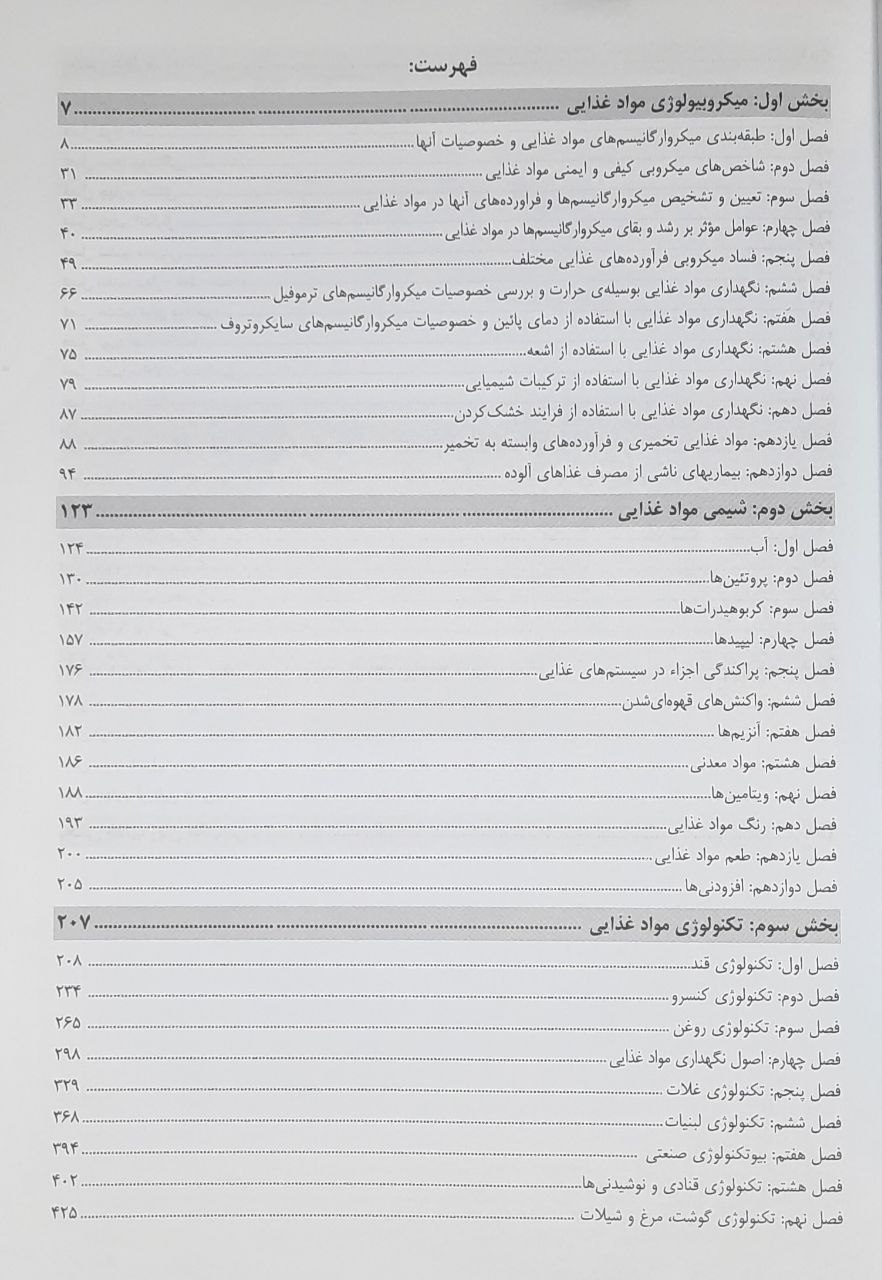 فهرست:
بخش اول: میکروبیولوژی مواد غذایی ........ ۷
فصل اول: طبقه‌بندی میکروارگانیسم‌های مواد غذایی و خصوصیات آنها ........ ۸
فصل دوم: شاخص‌های میکروبی کیفی و ایمنی مواد غذایی ........ ۳۱
فصل سوم: تعیین و تشخیص میکروارگانیسم‌ها و فراورده‌های آنها در مواد غذایی ........ ۳۳
فصل چهارم: عوامل مؤثر بر رشد و بقای میکروارگانیسم‌ها در مواد غذایی ........ ۴۰
فصل پنجم: فساد میکروبی فرآورده‌های غذایی مختلف ........ ۴۹
فصل ششم: نگهداری مواد غذایی بوسیله‌ی حرارت و بررسی خصوصیات میکروارگانیسم‌های ترموفیل ........ ۶۶
فصل هفتم: نگهداری مواد غذایی با استفاده از دمای پائین و خصوصیات میکروارگانیسم‌های سایکروتروف ........ ۷۱
فصل هشتم: نگهداری مواد غذایی با استفاده از اشعه ........ ۷۵
فصل نهم: نگهداری مواد غذایی با استفاده از ترکیبات شیمیایی ........ ۷۹
فصل دهم: نگهداری مواد غذایی با استفاده از فرایند خشک‌کردن ........ ۸۷
فصل یازدهم: مواد غذایی تخمیری و فرآورده‌های وابسته به تخمیر ........ ۸۸
فصل دوازدهم: بیماریهای ناشی از مصرف غذاهای آلوده ........ ۹۴
بخش دوم: شیمی مواد غذایی ........ ۱۲۳
فصل اول: آب ........ ۱۲۴
فصل دوم: پروتئین‌ها ........ ۱۳۰
فصل سوم: کربوهیدرات‌ها ........ ۱۴۲
فصل چهارم: لیپیدها ........ ۱۵۷
فصل پنجم: پراکندگی اجزاء در سیستم‌های غذایی ........ ۱۷۶
فصل ششم: واکنش‌های قهوه‌ای‌شدن ........ ۱۷۸
فصل هفتم: آنزیم‌ها ........ ۱۸۲
فصل هشتم: مواد معدنی ........ ۱۸۶
فصل نهم: ویتامین‌ها ........ ۱۸۸
فصل دهم: رنگ مواد غذایی ........ ۱۹۳
فصل یازدهم: طعم مواد غذایی ........ ۲۰۰
فصل دوازدهم: افزودنی‌ها ........ ۲۰۵
بخش سوم: تکنولوژی مواد غذایی ........ ۲۰۷
فصل اول: تکنولوژی قند ........ ۲۰۸
فصل دوم: تکنولوژی کنسرو ........ ۲۳۴
فصل سوم: تکنولوژی روغن ........ ۲۶۵
فصل چهارم: اصول نگهداری مواد غذایی ........ ۲۹۸
فصل پنجم: تکنولوژی غلات ........ ۳۲۹
فصل ششم: تکنولوژی لبنیات ........ ۳۶۸
فصل هفتم: بیوتکنولوژی صنعتی ........ ۳۹۴
فصل هشتم: تکنولوژی قنادی و نوشیدنی‌ها ........ ۴۰۲
فصل نهم: تکنولوژی گوشت، مرغ و شیلات ........ ۴۲۵